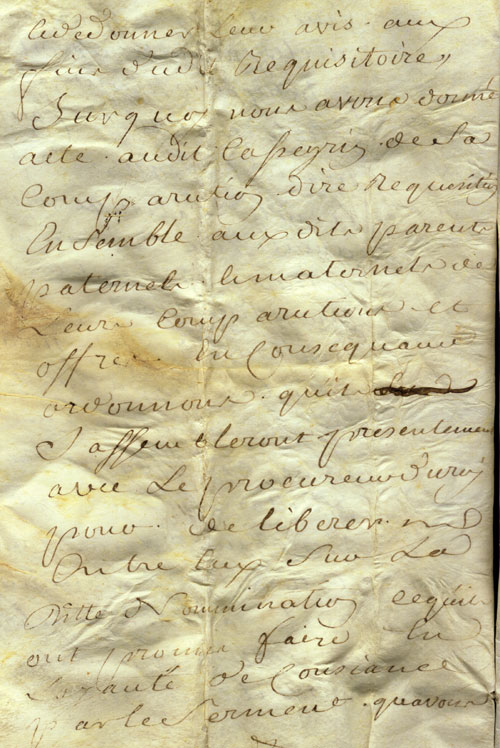 de donner leur avis aux
fins dudit Requisitoire,
Surquoy nous avons donné
acte audit Casseyrin de Sa
Comparution dire Requisitoire
Ensemble aux dits parents
paternels & maternels de
Leurs Comparutions et
offres. En Consequance
ordonnons quils
S'assembleront presentement
avec Le procureur d'uroy
pour deliberer
Entre Eux Sur La
Ditte Nommination cequils
ont promis faire En
Loyauté de Consiance
par le Serment quavons